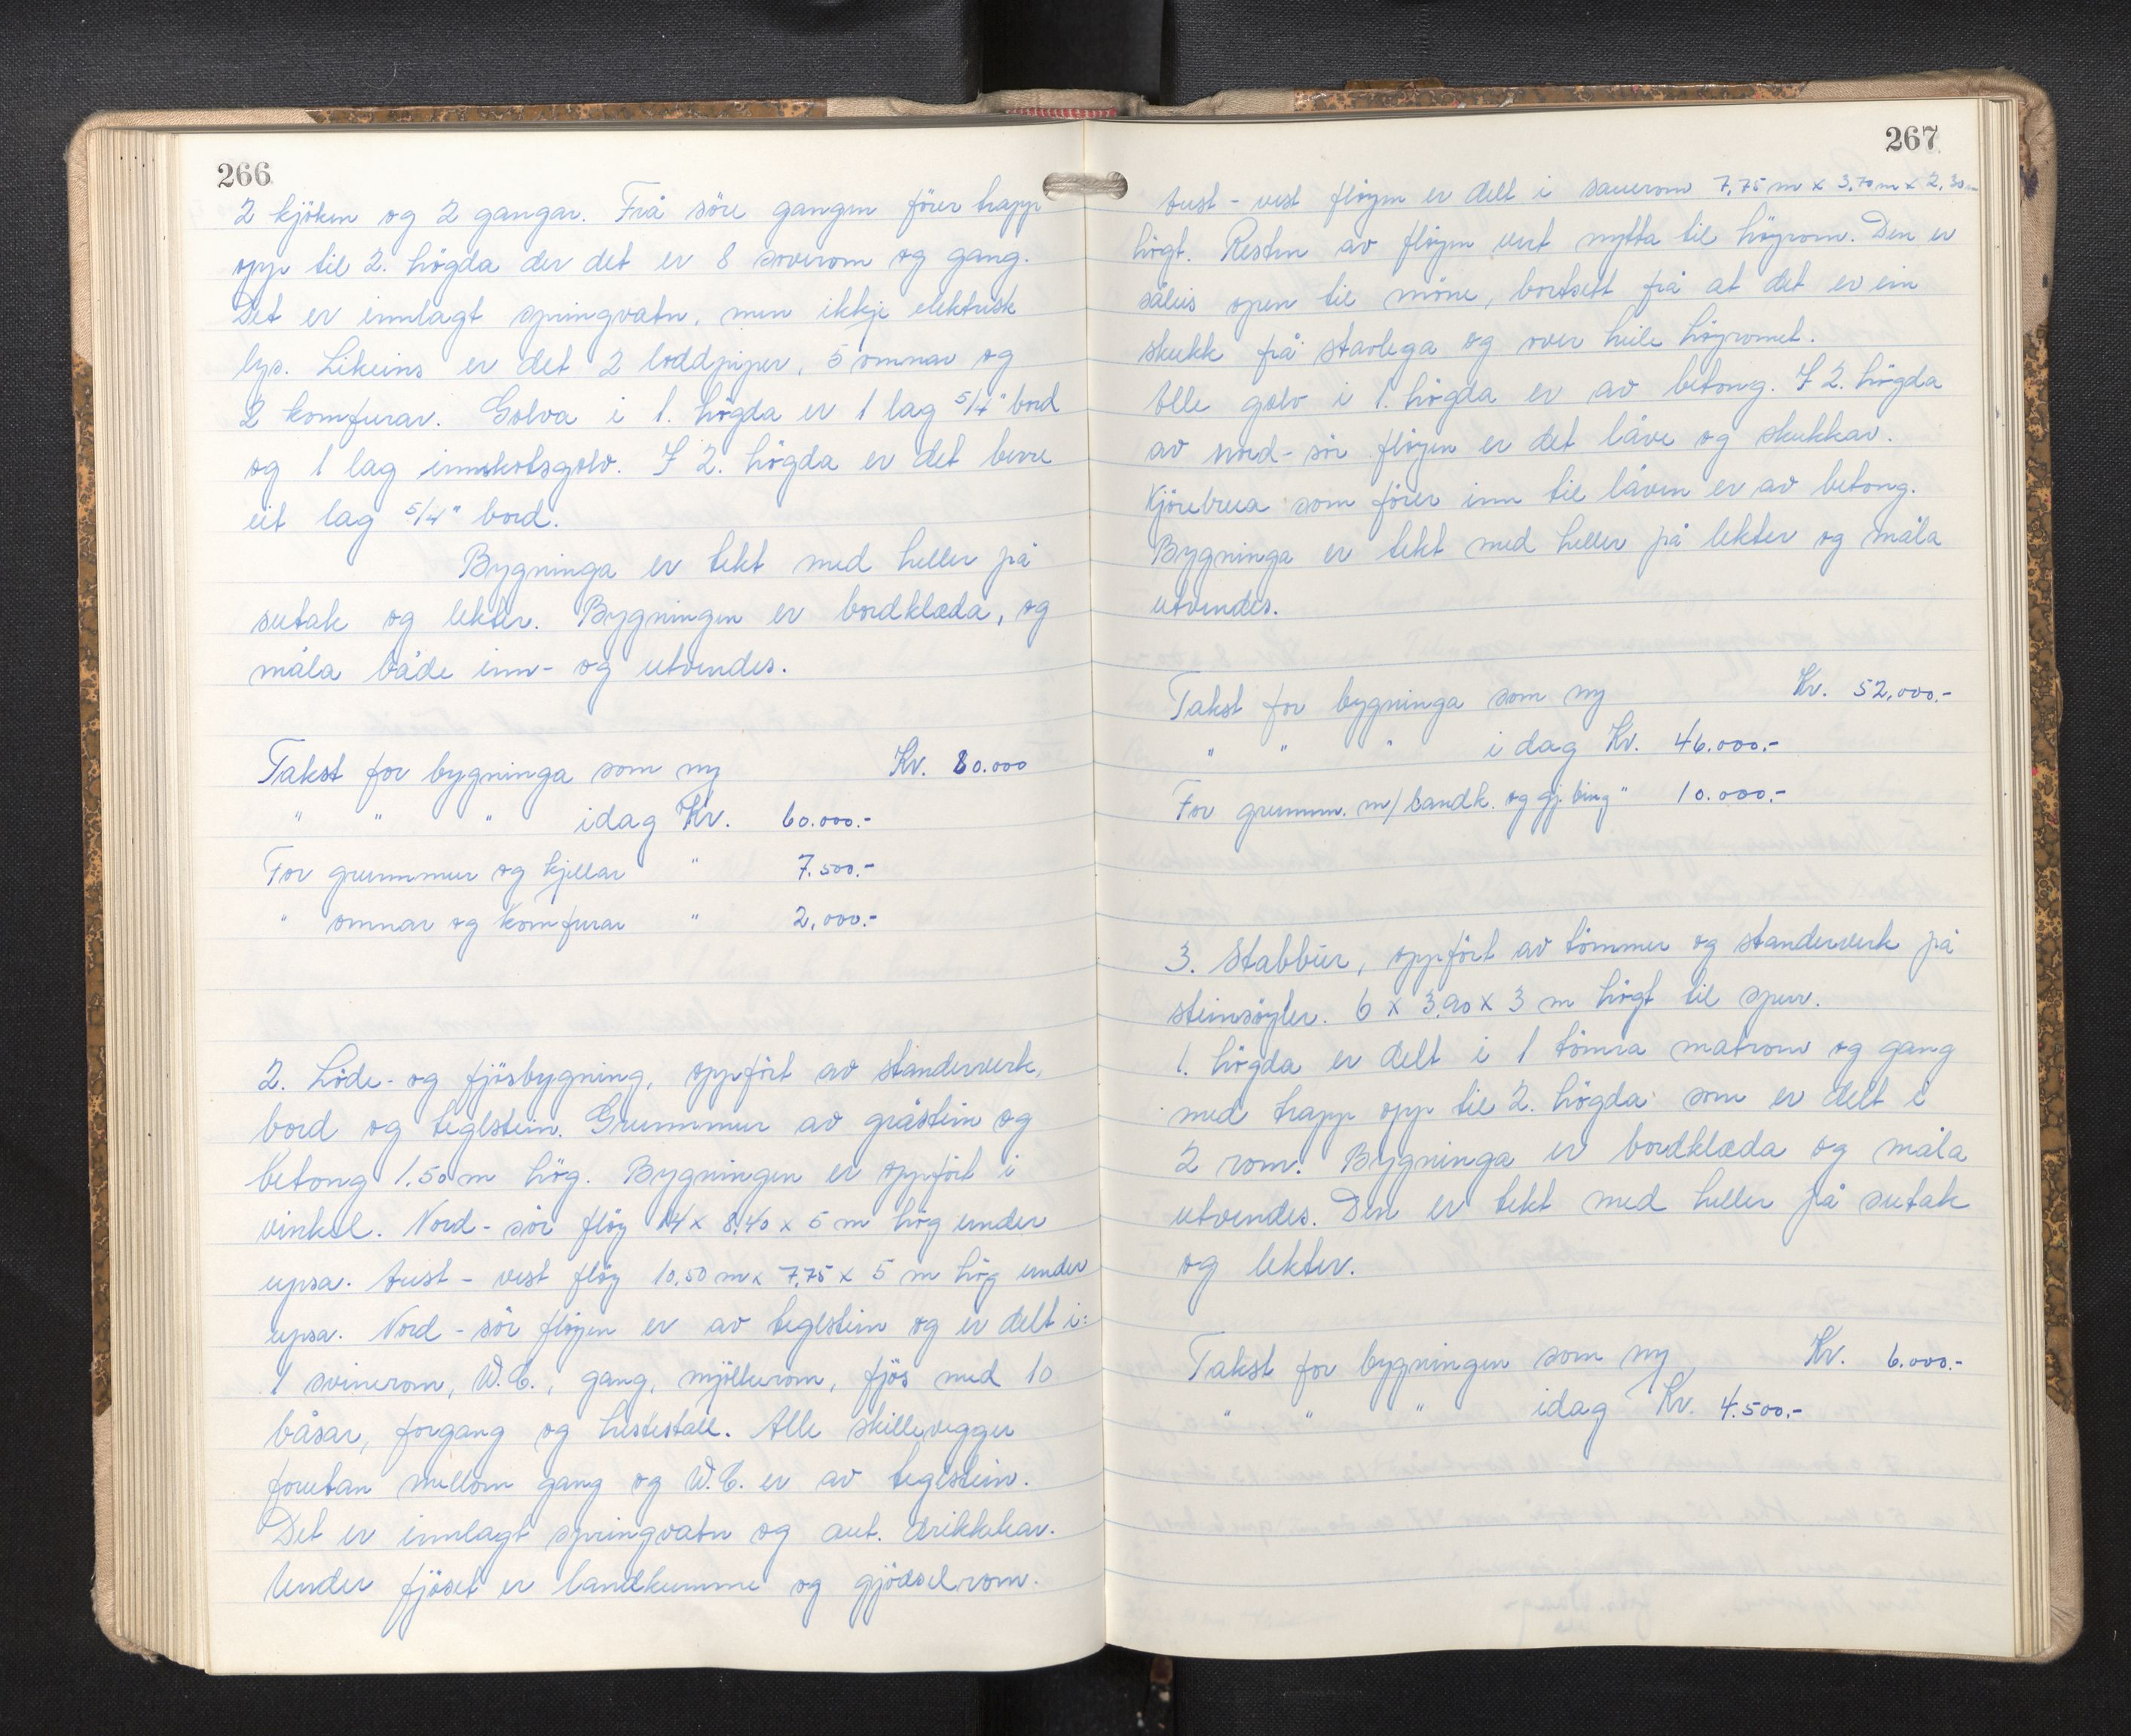 266
2 kjöken og 2 gangar. Frå söre gangen förer trapp
opp til 2. högda der det er 8 soverom og gang.
Det er innlagt springvatn, men ikkje elektrisk
lys. Likeins er det 2 loddpiper, 5 omnar og
2 komfurar. Golva i 1. högda er 1 lag 5/4" bord
og 1 lag innskotsgolv. I 2. högda er det berre
eit lag 5/4" bord.
Bygninga er tekt med heller på
sutak og lekter. Bygningen er bordklæda, og
måla både inn- og utvendes.
Takst for bygninga som ny Kr. 80.000
" " " idag Kr. 60.000.-
For grunnmur og kjellar " 7.500.-
" omnar og komfurar " 2.000.-
2. Löde- og fjösbygning, oppfört av standerverk,
bord og teglstein. Grunnmur av gråstein og
betong 1.50 m hög. Bygningen er oppfört i
vinkel. Nord-sör flöy 14 x 8,40 x 5 m hög under
upsa. Aust-vest flöy 10,50 m x 7,75 x 5 m hög under
upsa. Nord-sör flöyen er av teglstein og er delt i:
1 svinerom, W.C., gang, mjölkerom, fjös med 10
båsar, forgang og hestestall. Alle skillevegger
foruten millom gang og W.C. er av teglstein.
Det er innlagt springvatn og aut. drikkekar.
Under fjöset er landkumme og gjödselrom.
267
Aust-vest flöyen er delt i sauerom 7,75 m x 3,70 m x 2,30 m
högt. Resten av flöyen vert nytta til höyrom. Den er
såleis open til möne, bortsett frå at det er ein
skukk frå stavlega og over heile höyromet.
Alle golv i 1. högda er av betong. I 2. högda
av nord-sör flöyen er det låve og skukkar.
Kjörebrua som förer inn til låven er av betong.
Bygninga er tekt med heller på lekter og måla
utvendes.
Takst for bygninga som ny Kr. 52.000.-
" " " idag Kr. 46.000.-
For grunnm. m/landk. og gj. bing " 10.000.-
3. Stabbur, oppfört av tömmer og standerverk på
steinsöyler. 6 x 3,90 x 3 m högt til sperr.
1. högda er delt i 1 tömra matrom og gang
med trapp opp til 2. högda som er delt i
2 rom. Bygninga er bordklæda og måla
utvendes. Den er tekt med heller på sutak
og lekter.
Takst for bygningen som ny Kr. 6.000.-
" " " idag Kr. 4.500.-